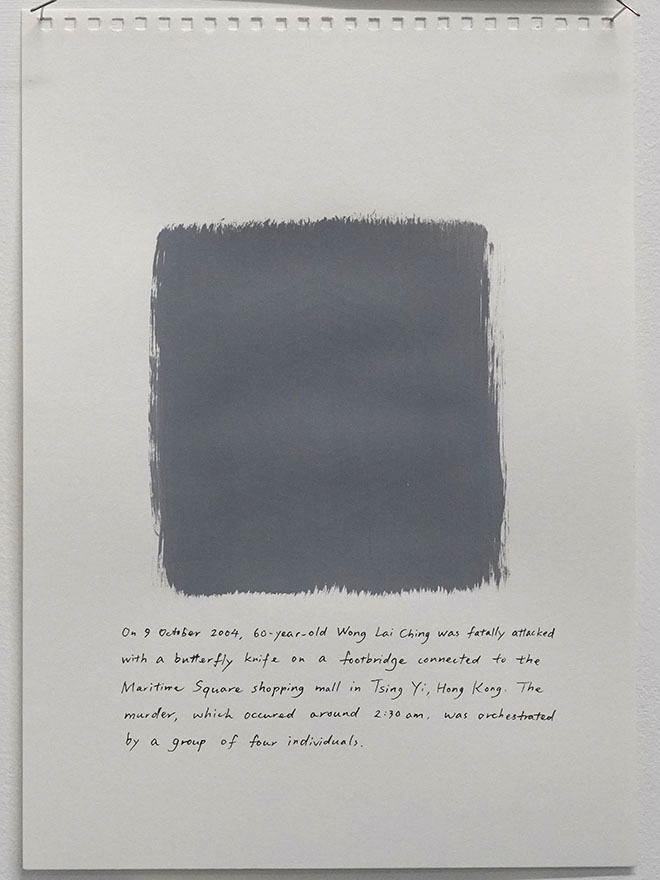 On 9 October 2004, 60-year-old Wong Lai Ching was fatally attacked
with a butterfly knife on a footbridge connected to the
Maritime Square shopping mall in Tsing Yi, Hong Kong. The
murder, which occured around 2:30 am, was orchestrated
by a group of four individuals.